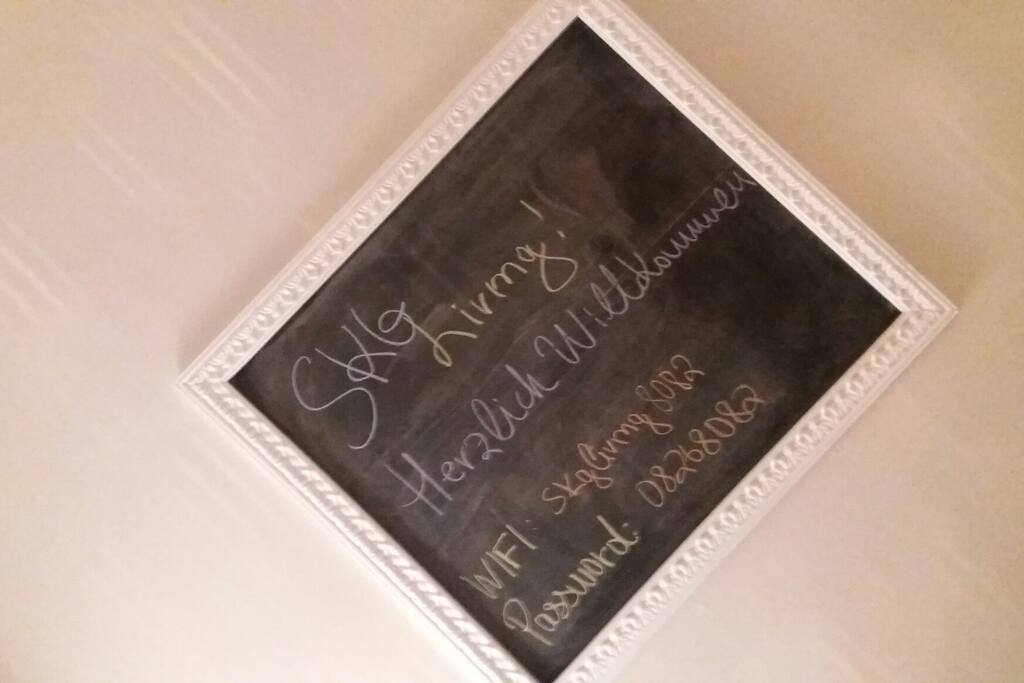 SKG
Living!
Herzlich Willkommen
WIFI: SkgLiving 8082
Password: 08268082